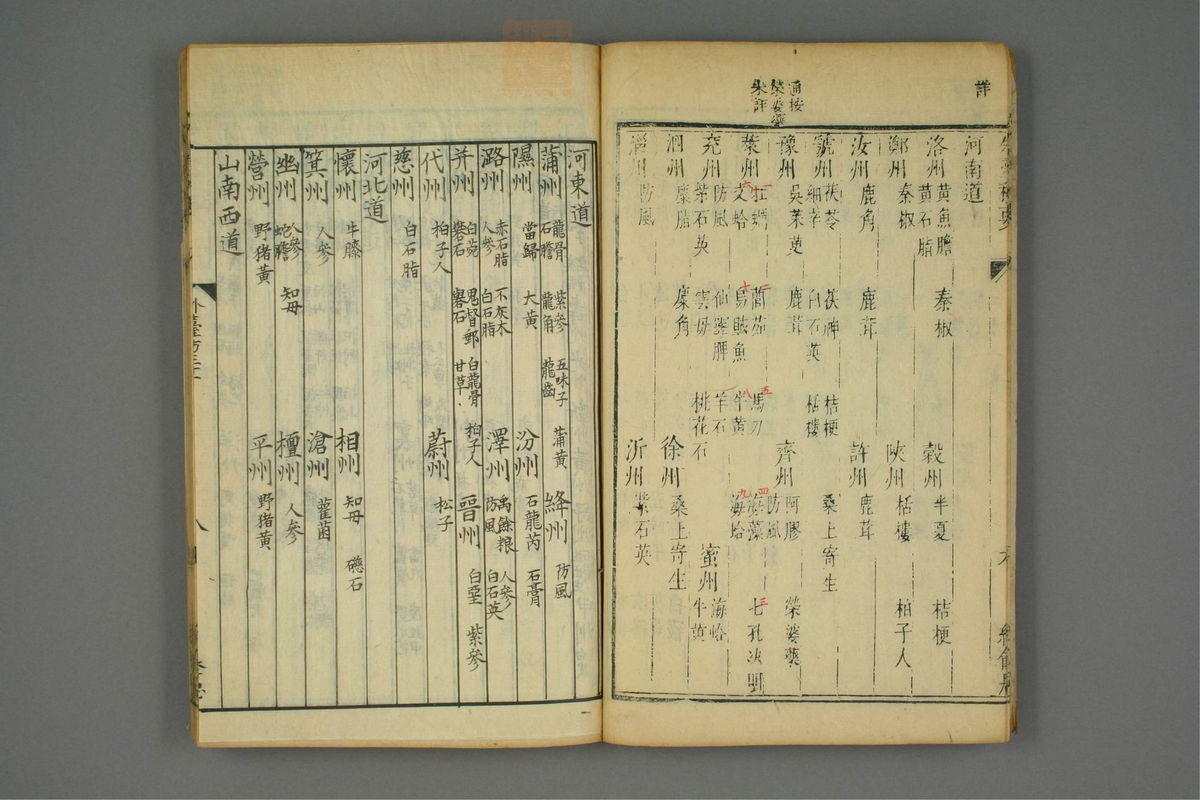 詳
通按
榮婆藥
未詳
河南道
洛州 黃魚膽 黃石脂 秦椒 穀州 半夏 桔梗
鄭州 秦椒 陝州 栝樓 柏子人
汝州 鹿角 鹿茸 許州 鹿茸
虢州 茯苓 細辛 茯神 白石英 桔梗 栝樓 桑上寄生
豫州 吳茱萸 鹿茸 齊州 阿膠 防風 榮婆藥
萊州 一 牡蠣 六 文蛤 二 䕡茹 七 烏賊魚 五 馬刀 八 牛黃 四 海藻 九 海蛤 三 七孔決明
兗州 防風 紫石英 仙靈脾 雲母 羊石 桃花石 密州 海蛤 牛黃
泗州 麋脂 麋角 徐州 桑上寄生
淄州 防風 沂州 紫石英
河東道
蒲州 龍骨 石膽 紫參 龍角 五味子 龍齒 蒲黃 絳州 防風
隰州 當歸 大黃 汾州 石龍芮 石膏
潞州 赤石脂 人參 不灰木 白石脂 澤州 禹餘粮 防風 人參 白石英
并州 白菀 礜石 鬼督郵 礬石 白龍骨 甘草 柏子人 晉州 白堊 紫參
代州 柏子人 蔚州 松子
慈州 白石脂
河北道
懷州 牛膝 相州 知母 磁石
箕州 人參 滄州 藋菌
幽州 人參 蛇膽 知母 檀州 人參
營州 野猪黃 平州 野猪黃
山南西道
外臺方三十一
八